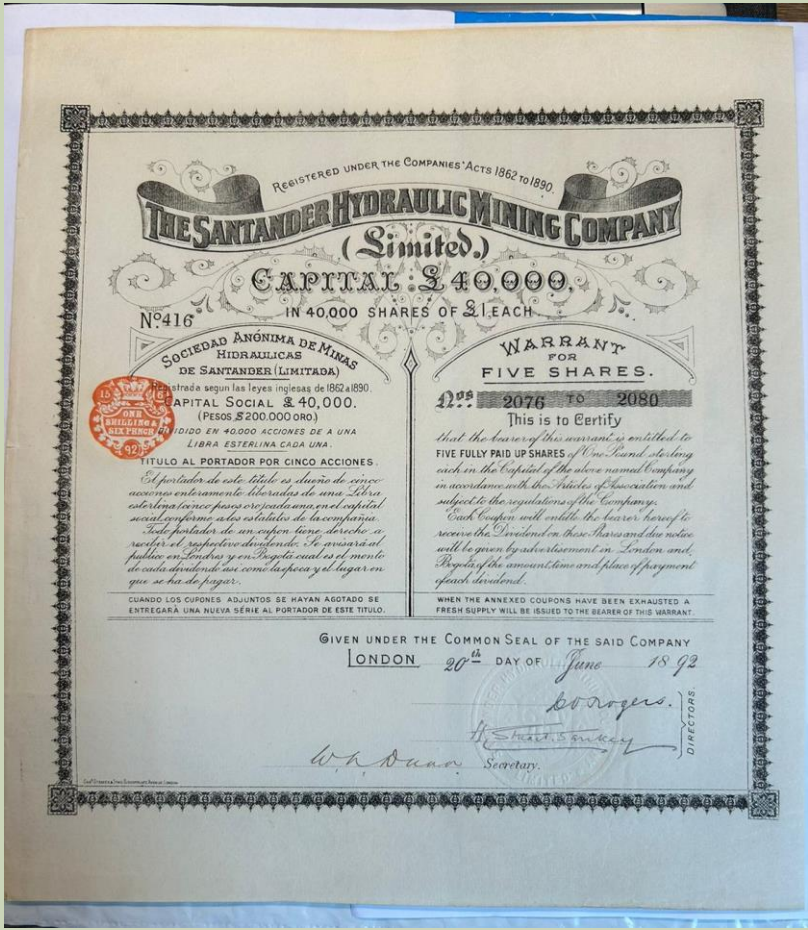 REGISTERED UNDER THE COMPANIES' ACTS 1862 TO 1890.
THE SANTANDER HYDRAULIC MINING COMPANY
(Limited.)
CAPITAL £40,000.
IN 40,000 SHARES OF £1 EACH.
No. 416
SOCIEDAD ANÓNIMA DE MINAS
HIDRAULICAS
DE SANTANDER (LIMITADA)
Registrada segun las leyes inglesas de 1862 a 1890.
CAPITAL SOCIAL £40,000.
(PESOS $200.000 ORO.)
DIVIDIDO EN 40.000 ACCIONES DE A UNA
LIBRA ESTERLINA CADA UNA.
TITULO AL PORTADOR POR CINCO ACCIONES.
El portador de este titulo es dueño de cinco
acciones enteramento liberadas de una Libra
esterlina (cinco pesos oro) cada una, en el capital
social, conforme a los estatutos de la compañia.
Todo portador de un cupon tiene derecho a
recibir el respectivo dividendo. Se avisará al
publico en Londres y en Bogota cual es el monto
de cada dividendo asi como la epoca y el lugar en
que se ha de pagar.
CUANDO LOS CUPONES ADJUNTOS SE HAYAN AGOTADO SE
ENTREGARÁ UNA NUEVA SÉRIE AL PORTADOR DE ESTE TITULO.
ONE
SHILLING &
SIX PENCE
92
WARRANT
FOR
FIVE SHARES.
Nos. 2076 TO 2080
This is to Certify
that the bearer of this warrant is entitled to
FIVE FULLY PAID UP SHARES of One Pound sterling
each in the Capital of the above named Company
in accordance with the Articles of Association and
subject to the regulations of the Company.
Each Coupon will entitle the bearer hereof to
receive the Dividend on these Shares and due notice
will be given by advertisement in London and
Bogota, of the amount, time and place of payment
of each dividend.
WHEN THE ANNEXED COUPONS HAVE BEEN EXHAUSTED A
FRESH SUPPLY WILL BE ISSUED TO THE BEARER OF THIS WARRANT.
GIVEN UNDER THE COMMON SEAL OF THE SAID COMPANY
LONDON 20th DAY OF June 1892
Rogers.
H. Stuart Sankey
DIRECTORS.
Secretary.